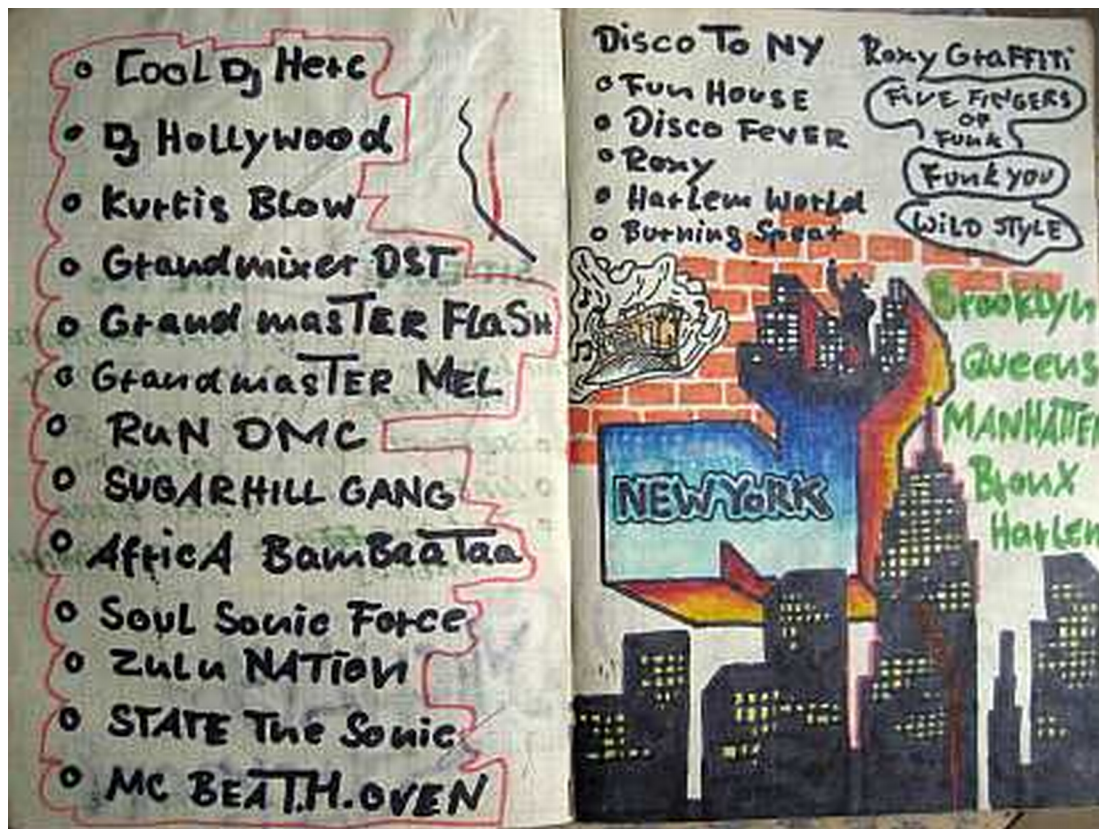 Cool Dj Herc
Dj Hollywood
Kurtis Blow
Grandmixer DST
Grand masTER FLaSH
GrandmasTER MEL
RuN DMC
SUGARHILL GANG
AfricA BamBaaTaa
Soul Sonic Force
Zulu NATion
STATE The Sonic
MC BEAT.H.OVEN
Disco To NY
Fun HOUSE
Disco FEVER
Roxy
Harlem World
Burning Spear
Roxy GraFFiTi
FiVE FiNGERS
OF
Funk
Funk you
WiLD STYLE
NEW YORK
Brooklyn
Queens
MANHATTEN
Bronx
Harlem